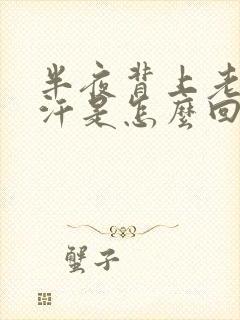 半夜背上老
汗是怎麽回
蟹子